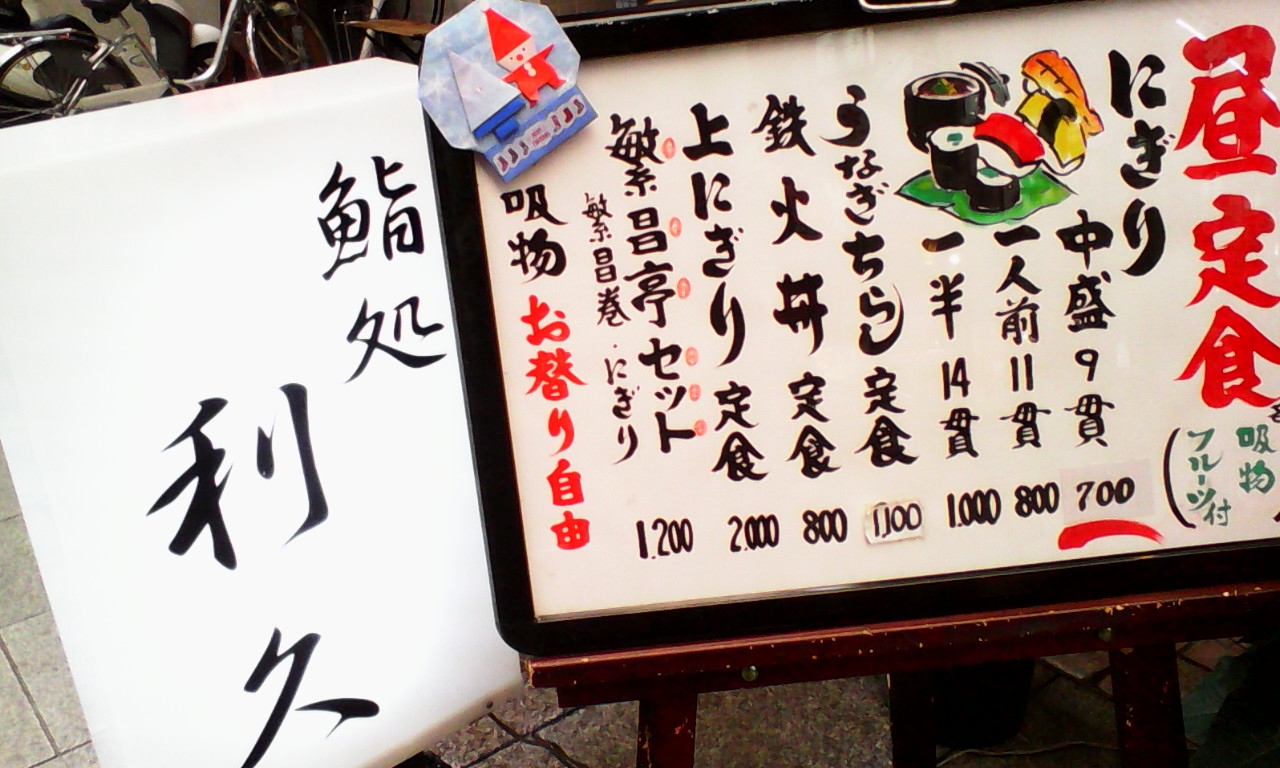 昼定食
吸物
フルーツ付
にぎり
中盛9貫 700
一人前11貫 800
一半14貫 1.000
うなぎちらし定食 1,100
鉄火丼定食 800
上にぎり定食 2.000
繁昌亭セット 1.200
繁昌巻・にぎり
吸物お替り自由
鮨処
利久